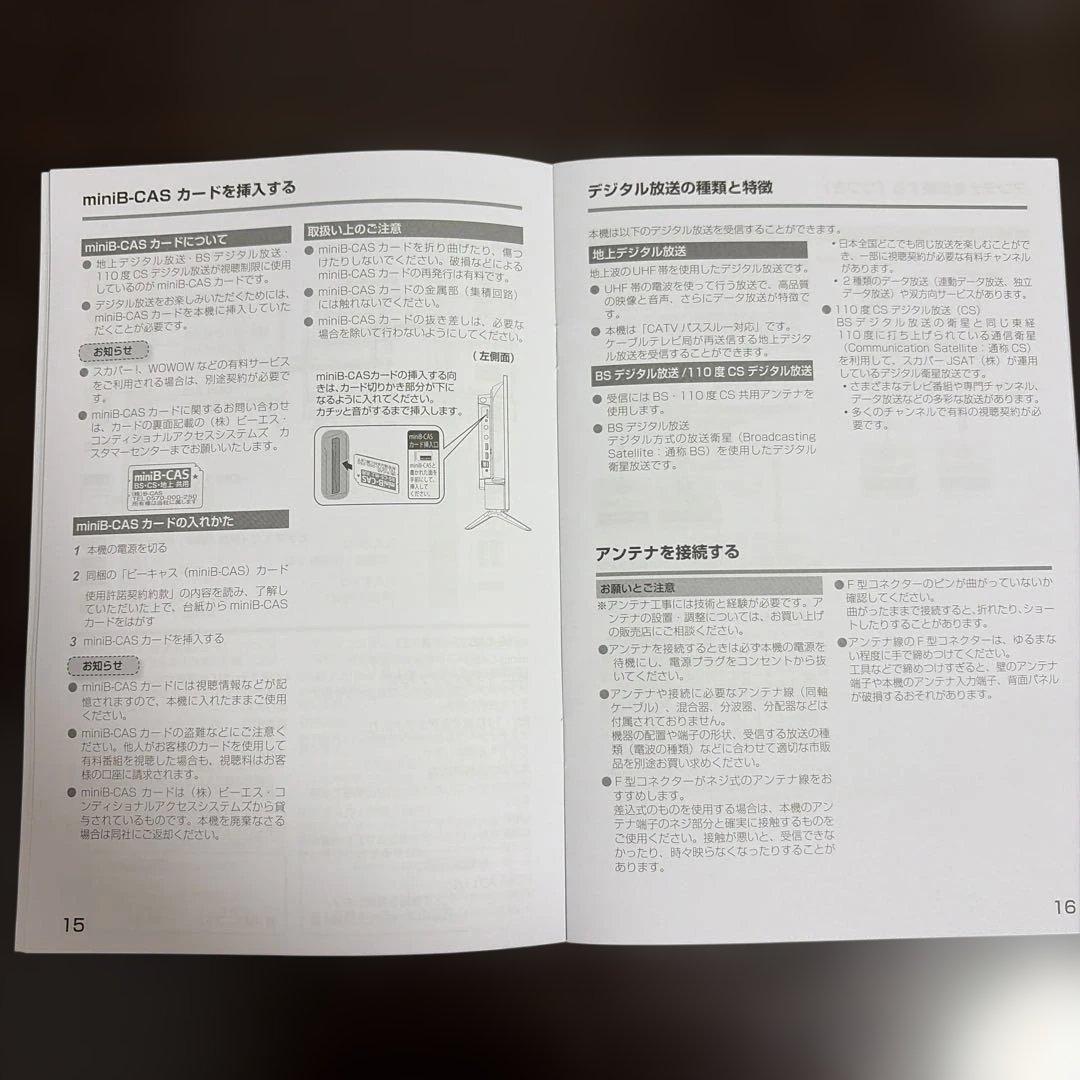 miniB-CAS カードを挿入する
miniB-CAS カードについて
● 地上デジタル放送・BS デジタル放送・
110 度 CS デジタル放送が視聴制限に使用
しているのが miniB-CAS カードです。
● デジタル放送をお楽しみいただくためには、
miniB-CAS カードを本機に挿入していた
だくことが必要です。
お知らせ
● スカパー！、WOWOW などの有料サービス
をご利用される場合は、別途契約が必要で
す。
● miniB-CAS カードに関するお問い合わせ
は、カードの裏面記載の（株）ビーエス・
コンディショナルアクセスシステムズ カ
スタマーセンターまでお願いいたします。
miniB-CAS
BS・CS・地上 共用
(株)B-CAS
TEL.0570-000-250
所有権は当社に属します
miniB-CAS カードの入れかた
1 本機の電源を切る
2 同梱の「ビーキャス（miniB-CAS）カード
使用許諾契約約款」の内容を読み、了解し
ていただいた上で、台紙から miniB-CAS
カードをはがす
3 miniB-CAS カードを挿入する
お知らせ
● miniB-CAS カードには視聴情報などが記
憶されますので、本機に入れたままご使用
ください。
● miniB-CAS カードの盗難などにご注意く
ださい。他人がお客様のカードを使用して
有料番組を視聴した場合も、視聴料はお客
様の口座に請求されます。
● miniB-CAS カードは（株）ビーエス・コ
ンディショナルアクセスシステムズから貸
与されているものです。本機を廃棄なさる
場合は同社にご返却ください。
取扱い上のご注意
● miniB-CAS カードを折り曲げたり、傷つ
けたりしないでください。破損などによる
miniB-CAS カードの再発行は有料です。
● miniB-CAS カードの金属部（集積回路）
には触れないでください。
● miniB-CAS カードの抜き差しは、必要な
場合を除いて行わないようにしてください。
（左側面）
miniB-CASカードの挿入する向
きは、カード切りかき部分が下に
なるように入れてください。
カチッと音がするまで挿入します。
miniB-CAS
カード挿入口
miniB-CASと
書かれた面を
手前にして、
挿入して
ください。
miniB-CAS
15
デジタル放送の種類と特徴
本機は以下のデジタル放送を受信することができます。
地上デジタル放送
地上波のUHF帯を使用したデジタル放送です。
● UHF 帯の電波を使って行う放送で、高品質
の映像と音声、さらにデータ放送が特徴で
す。
● 本機は「CATV パススルー対応」です。
ケーブルテレビ局が再送信する地上デジタ
ル放送を受信することができます。
BS デジタル放送 /110 度 CS デジタル放送
● 受信には BS・110 度 CS 共用アンテナを
使用します。
● BS デジタル放送
デジタル方式の放送衛星（Broadcasting
Satellite：通称 BS）を使用したデジタル
衛星放送です。
• 日本全国どこでも同じ放送を楽しむことがで
き、一部に視聴契約が必要な有料チャンネル
があります。
• 2 種類のデータ放送（連動データ放送、独立
データ放送）や双方向サービスがあります。
● 110 度 CS デジタル放送（CS）
BS デジタル放送の衛星と同じ東経
110 度に打ち上げられている通信衛星
（Communication Satellite：通称 CS）
を利用して、スカパー JSAT（株）が運用
しているデジタル衛星放送です。
• さまざまなテレビ番組や専門チャンネル、
データ放送などの多彩な放送があります。
• 多くのチャンネルで有料の視聴契約が必
要です。
アンテナを接続する
お願いとご注意
※アンテナ工事には技術と経験が必要です。ア
ンテナの設置・調整については、お買い上げ
の販売店にご相談ください。
●アンテナを接続するときは必ず本機の電源を
待機にし、電源プラグをコンセントから抜
いてください。
●アンテナや接続に必要なアンテナ線（同軸
ケーブル）、混合器、分波器、分配器などは
付属されておりません。
機器の配置や端子の形状、受信する放送の種
類（電波の種類）などに合わせて適切な市販
品を別途お買い求めください。
● F 型コネクターがネジ式のアンテナ線をお
すすめします。
差込式のものを使用する場合は、本機のアン
テナ端子のネジ部分と確実に接触するものを
ご使用ください。接触が悪いと、受信できな
かったり、時々映らなくなったりすることが
あります。
● F 型コネクターのピンが曲がっていないか
確認してください。
曲がったままで接続すると、折れたり、ショー
トしたりすることがあります。
●アンテナ線の F 型コネクターは、ゆるまな
い程度に手で締めつけてください。
工具などで締めつけすぎると、壁のアンテナ
端子や本機のアンテナ入力端子、背面パネル
が破損するおそれがあります。
16